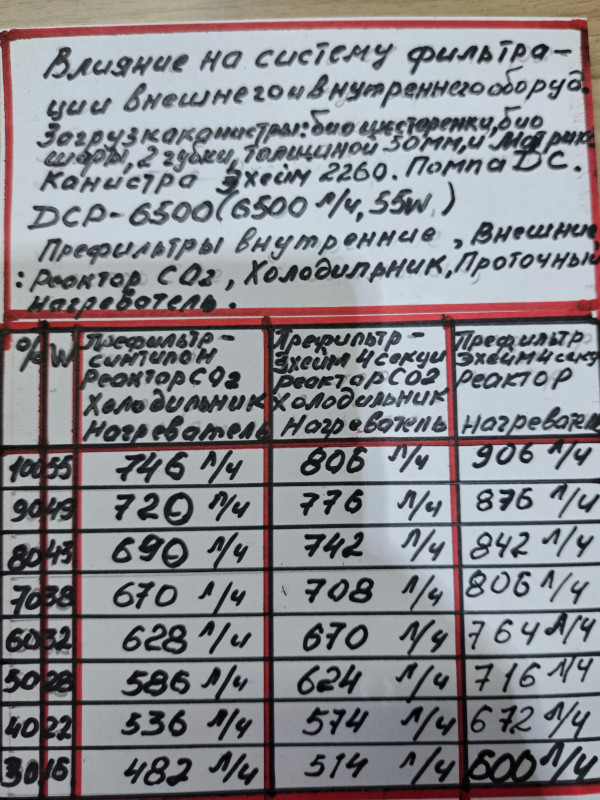 Влияние на систему фильтра-
ции внешнего и внутреннего оборуд.
Загрузка канистры: био шестеренки, био
шары, 2 губки, толщиной 50мм, и матрикс
Канистра Эхейм 2260. Помпа DC.
DCP-6500 (6500 л/ч, 55W.)
Префильтры внутренние, Внешние
: Реактор CO2, Холодильник, Проточный
нагреватель.
% W Префильтр- синтипон Реактор CO2 Холодильник Нагреватель Префильтр- Эхейм 4 секци Реактор CO2 Холодильник Нагреватель Префильтр Эхейм 4 секц Реактор Нагревател
100 55 746 л/ч 806 л/ч 906 л/ч
90 49 720 л/ч 776 л/ч 876 л/ч
80 43 690 л/ч 742 л/ч 842 л/ч
70 38 670 л/ч 708 л/ч 806 л/ч
60 32 628 л/ч 670 л/ч 764 л/ч
50 28 586 л/ч 624 л/ч 716 л/ч
40 22 536 л/ч 574 л/ч 672 л/ч
30 16 482 л/ч 514 л/ч 600 л/ч